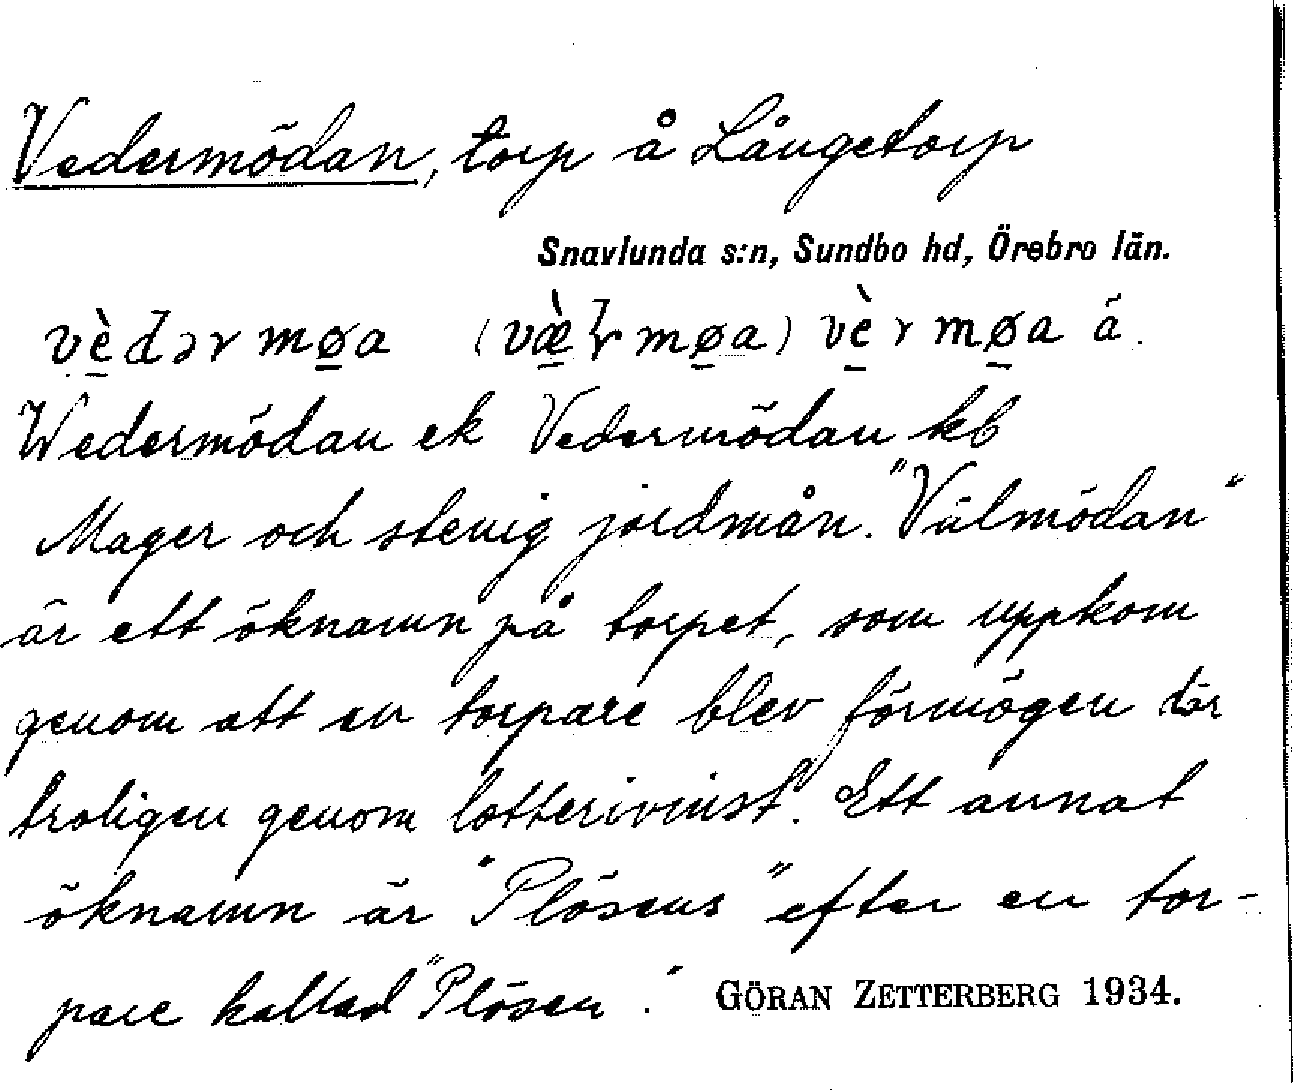 Vedermödan, torp å Långetorp
Snavlunda s:n, Sundbo hd, Örebro län.
vèdərmøa (væ̀ɽmøa) vèrmøa ä.
Wedermödan ek Vedermödan kb
Mager och stenig jordmån. "Välmödan"
är ett öknamn på torpet, som uppkom
genom att en torpare blev förmögen där
troligen genom lotterivinst. Ett annat
öknamn är "Plösens" efter en tor-
pare kallad "Plösen".
GÖRAN ZETTERBERG 1934.